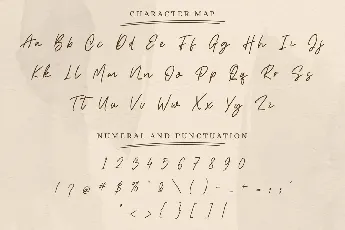 CHARACTER MAP
Aa Bb Cc Dd Ee Ff Gg Hh Ii Jj
Kk Ll Mm Nn Oo Pp Qq Rr Ss
Tt Uu Vv Ww Xx Yy Zz
NUMERAL AND PUNCTUATION
1 2 3 4 5 6 7 8 9 0
! ? @ # $ % ^ & \ ( ) - _ + = : ; '
" < > { } [ ] |